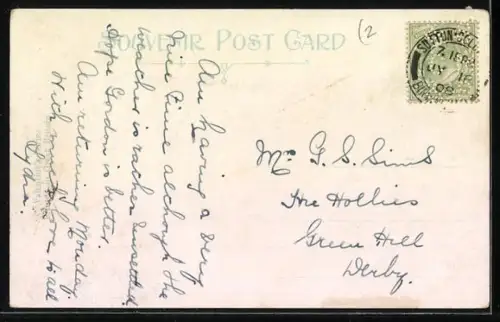 SOUVENIR POST CARD
(2
Am having a very
fine time although the
weather is rather unsettled.
Hope Gordon is better.
Am returning Monday.
With much love to all
Lydia.
Mrs G. S. Sims
The Hollies
Green Hill
Derby.
JY 16
09